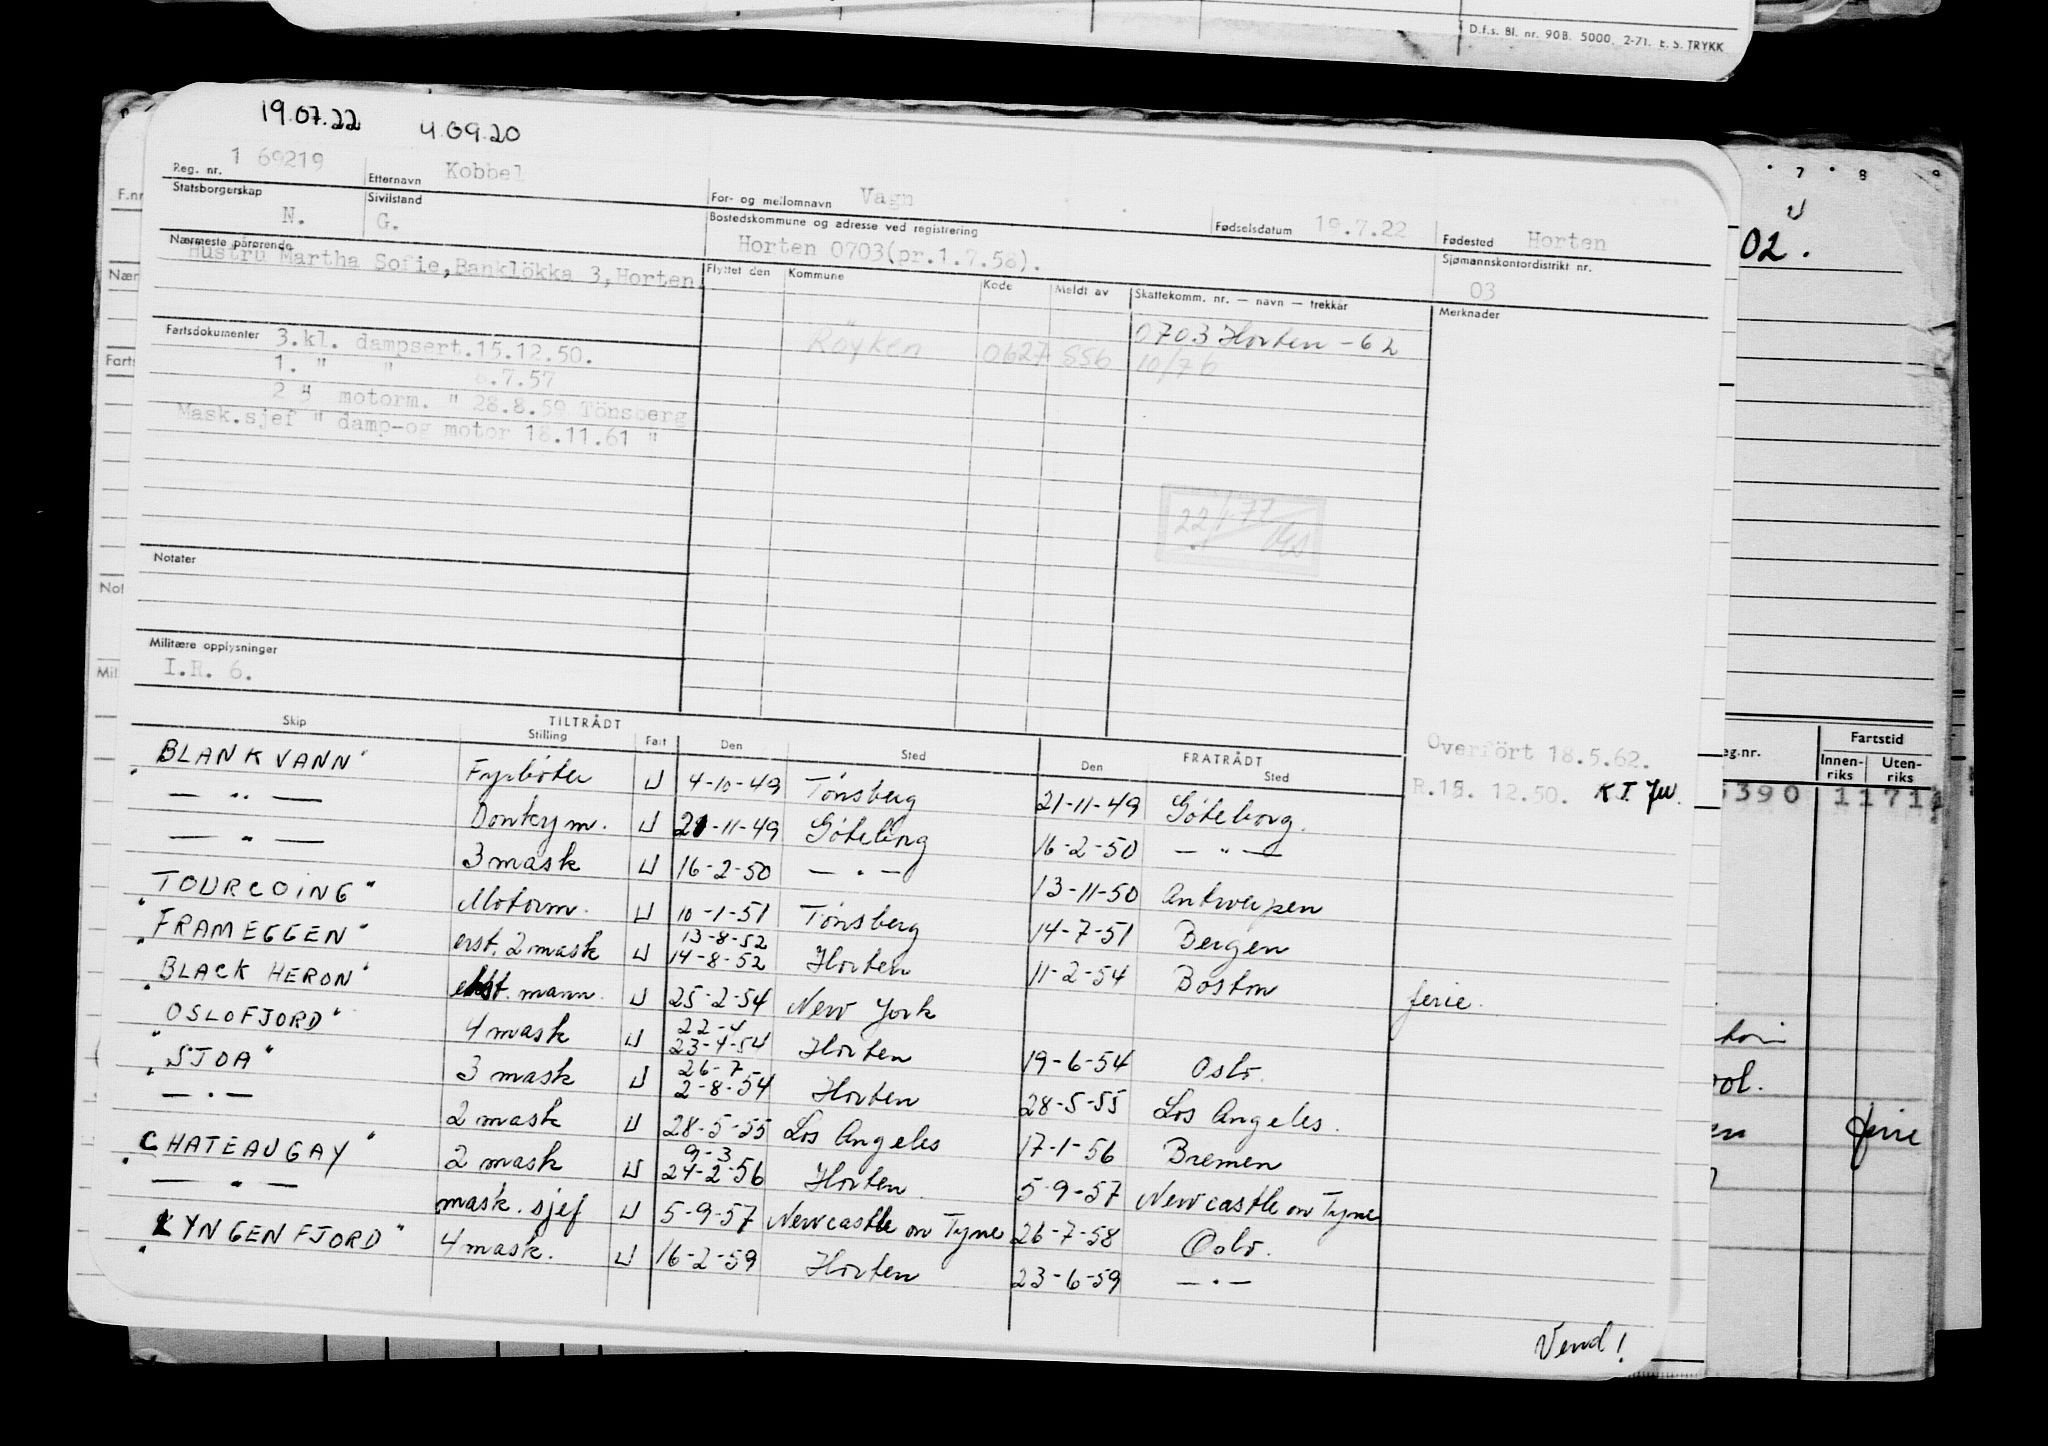 D.f.s. Bl. nr. 90B. 5000. 2-71. E. S. TRYKK
19.07.22 4.09.20
Reg. nr. 1 69219 Etternavn Kobbel For- og mellomnavn Vagn Fødselsdatum 19.7.22 Fødested Horten
Statsborgerskap N. Sivilstand G. Bostedskommune og adresse ved registrering Horten 0703(pr.1.7.58). Sjømannskontordistrikt nr. 03
Nærmeste pårørende Hustru Martha Sofie, Banklökka 3, Horten.
Flyttet den Kommune Kode Meldt av Skattekomm. nr. — navn — trekkår Merknader
0703 Horten - 62
Röyken 0627 556 10/76
Fartsdokumenter 3.kl. dampsert.15.12.50.
1. " " .7.57
2 " motorm. " 28.8.59 Tönsberg
Mask.sjef " damp-og motor 18.11.61 "
22/ 77
Notater
Militære opplysninger
I.R. 6.
Skip TILTRÅDT Stilling Fart Den Sted FRATRÅDT Den Sted
Overfört 18.5.62.
R.15. 12.50. K.T.
"BLANKVANN" Fyrböter U 4-10-49 Tönsberg 21-11-49 Göteborg.
— " — Donkeym. U 21-11-49 Göteborg 16-2-50 — " —
— " — 3 mask U 16-2-50 — " — 13-11-50 Antwerpen
"TOURCOING" Motorm. U 10-1-51 Tönsberg 14-7-51 Bergen
"FRAMEGGEN" erst. 2 mask U 13-8-52 14-8-52 Horten 11-2-54 Boston ferie.
"BLACK HERON" ekst. mann. U 25-2-54 New York
"OSLOFJORD" 4 mask U 22-4 23-4-54 Horten 19-6-54 Oslo.
"SJOA" 3 mask U 26-7- 2-8-54 Horten 28-5-55 Los Angeles.
— " — 2 mask U 28-5-55 Los Angeles 17-1-56 Bremen
"CHATEAUGAY" 2 mask U 9-3 24-2-56 Horten 5-9-57 Newcastle on Tyne
— " — mask. sjef U 5-9-57 Newcastle on Tyne 26-7-58 Oslo.
"LYNGENFJORD" 4 mask. U 16-2-59 Horten 23-6-59 — " —
Vend!
F.nr
Nær
Farts
Not
Mil
7 8 9
02.
eg.nr. Fartstid
Innen-riks Uten-riks
5390 1171
ool.
en ferie